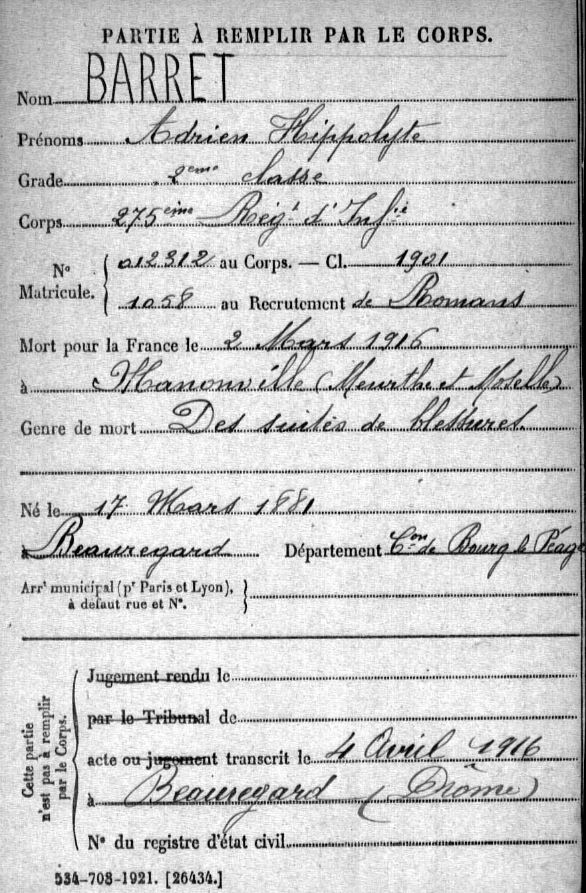 PARTIE À REMPLIR PAR LE CORPS.
Nom BARRET
Prénoms Adrien Hippolyte
Grade 2eme classe
Corps 275eime Régt d'Infie
No Matricule. 012312 au Corps. — Cl. 1901
1058 au Recrutement de Romans
Mort pour la France le 2 Mars 1916
à Manonville (Meurthe et Moselle)
Genre de mort Des suites de blessures
Né le 17 Mars 1881
à Beauregard Département Con de Bourg le Péage
Arrt municipal (pr Paris et Lyon), à défaut rue et No.
Cette partie n'est pas à remplir par le Corps.
Jugement rendu le
par le Tribunal de
acte ou jugement transcrit le 4 Avril 1916
à Beauregard (Drôme)
No du registre d'état civil
534-708-1921. [26434.]